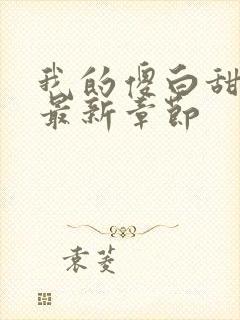 我的傻白甜
最新章节
袁菱